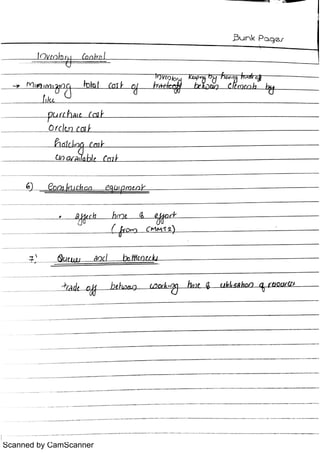 Bunk Pages
Inventory Control
→ minimizing total cost of inventory by tradeoff between clements by
like
purchase cost
Orclen cost
holding cost
unavailable cost
6) Construction equipment
• affects time & effort
(from CMMS2)
7. Queues and bottlenecks
trade off between working time & utilisation of resources
Scanned by CamScanner